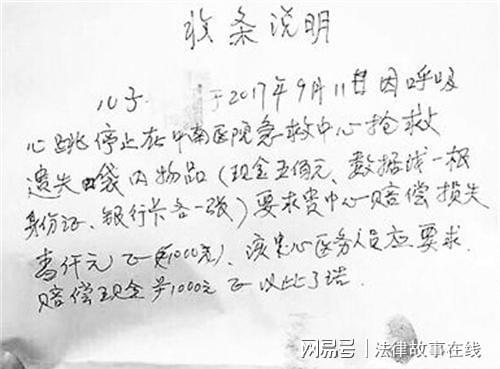 收条说明
儿子 于2017年9月11日因呼吸
心跳停止在中南医院急救中心抢救
遗失口袋内物品(现金五佰元、数据线一根
身份证、银行卡各一张)要求贵中心赔偿损失
壹仟元正(¥1000元)、该中心医务人员应要求
赔偿现金¥1000元正以此了结.
网易号 法律故事在线